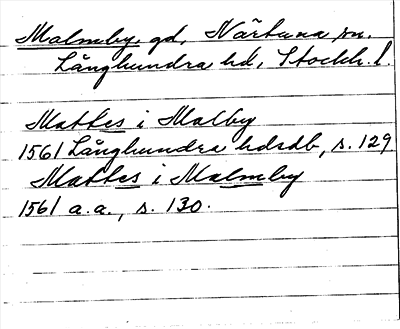 Malmby gd, Närtuna sn.
Långhundra hd, Stockh. l.
Mattes i Malby
1561 Långhundra hdsdb, s. 129
Mattes i Malmby
1561 a.a., s. 130.